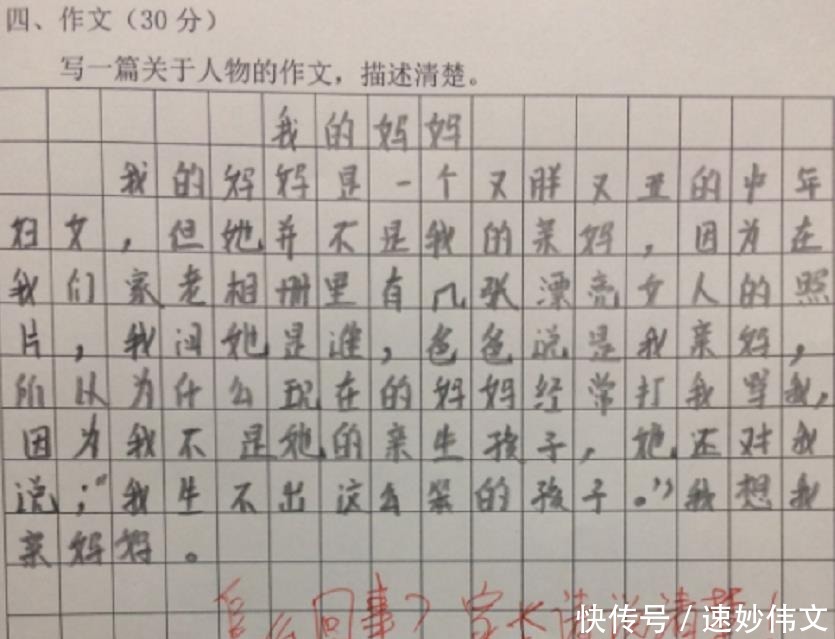 四、作文（30分）
写一篇关于人物的作文，描述清楚。
我的妈妈
我的妈妈是一个又胖又丑的中年
妇女，但她并不是我的亲妈，因为在
我们家老相册里有几张漂亮女人的照
片，我问她是谁，爸爸说是我亲妈，
所以为什么现在的妈妈经常打我骂我，
因为我不是她的亲生孩子，她还对我
说；“我生不出这么笨的孩子。”我想我
亲妈妈。
怎么回事？家长请说清楚！
快传号／速妙伟文